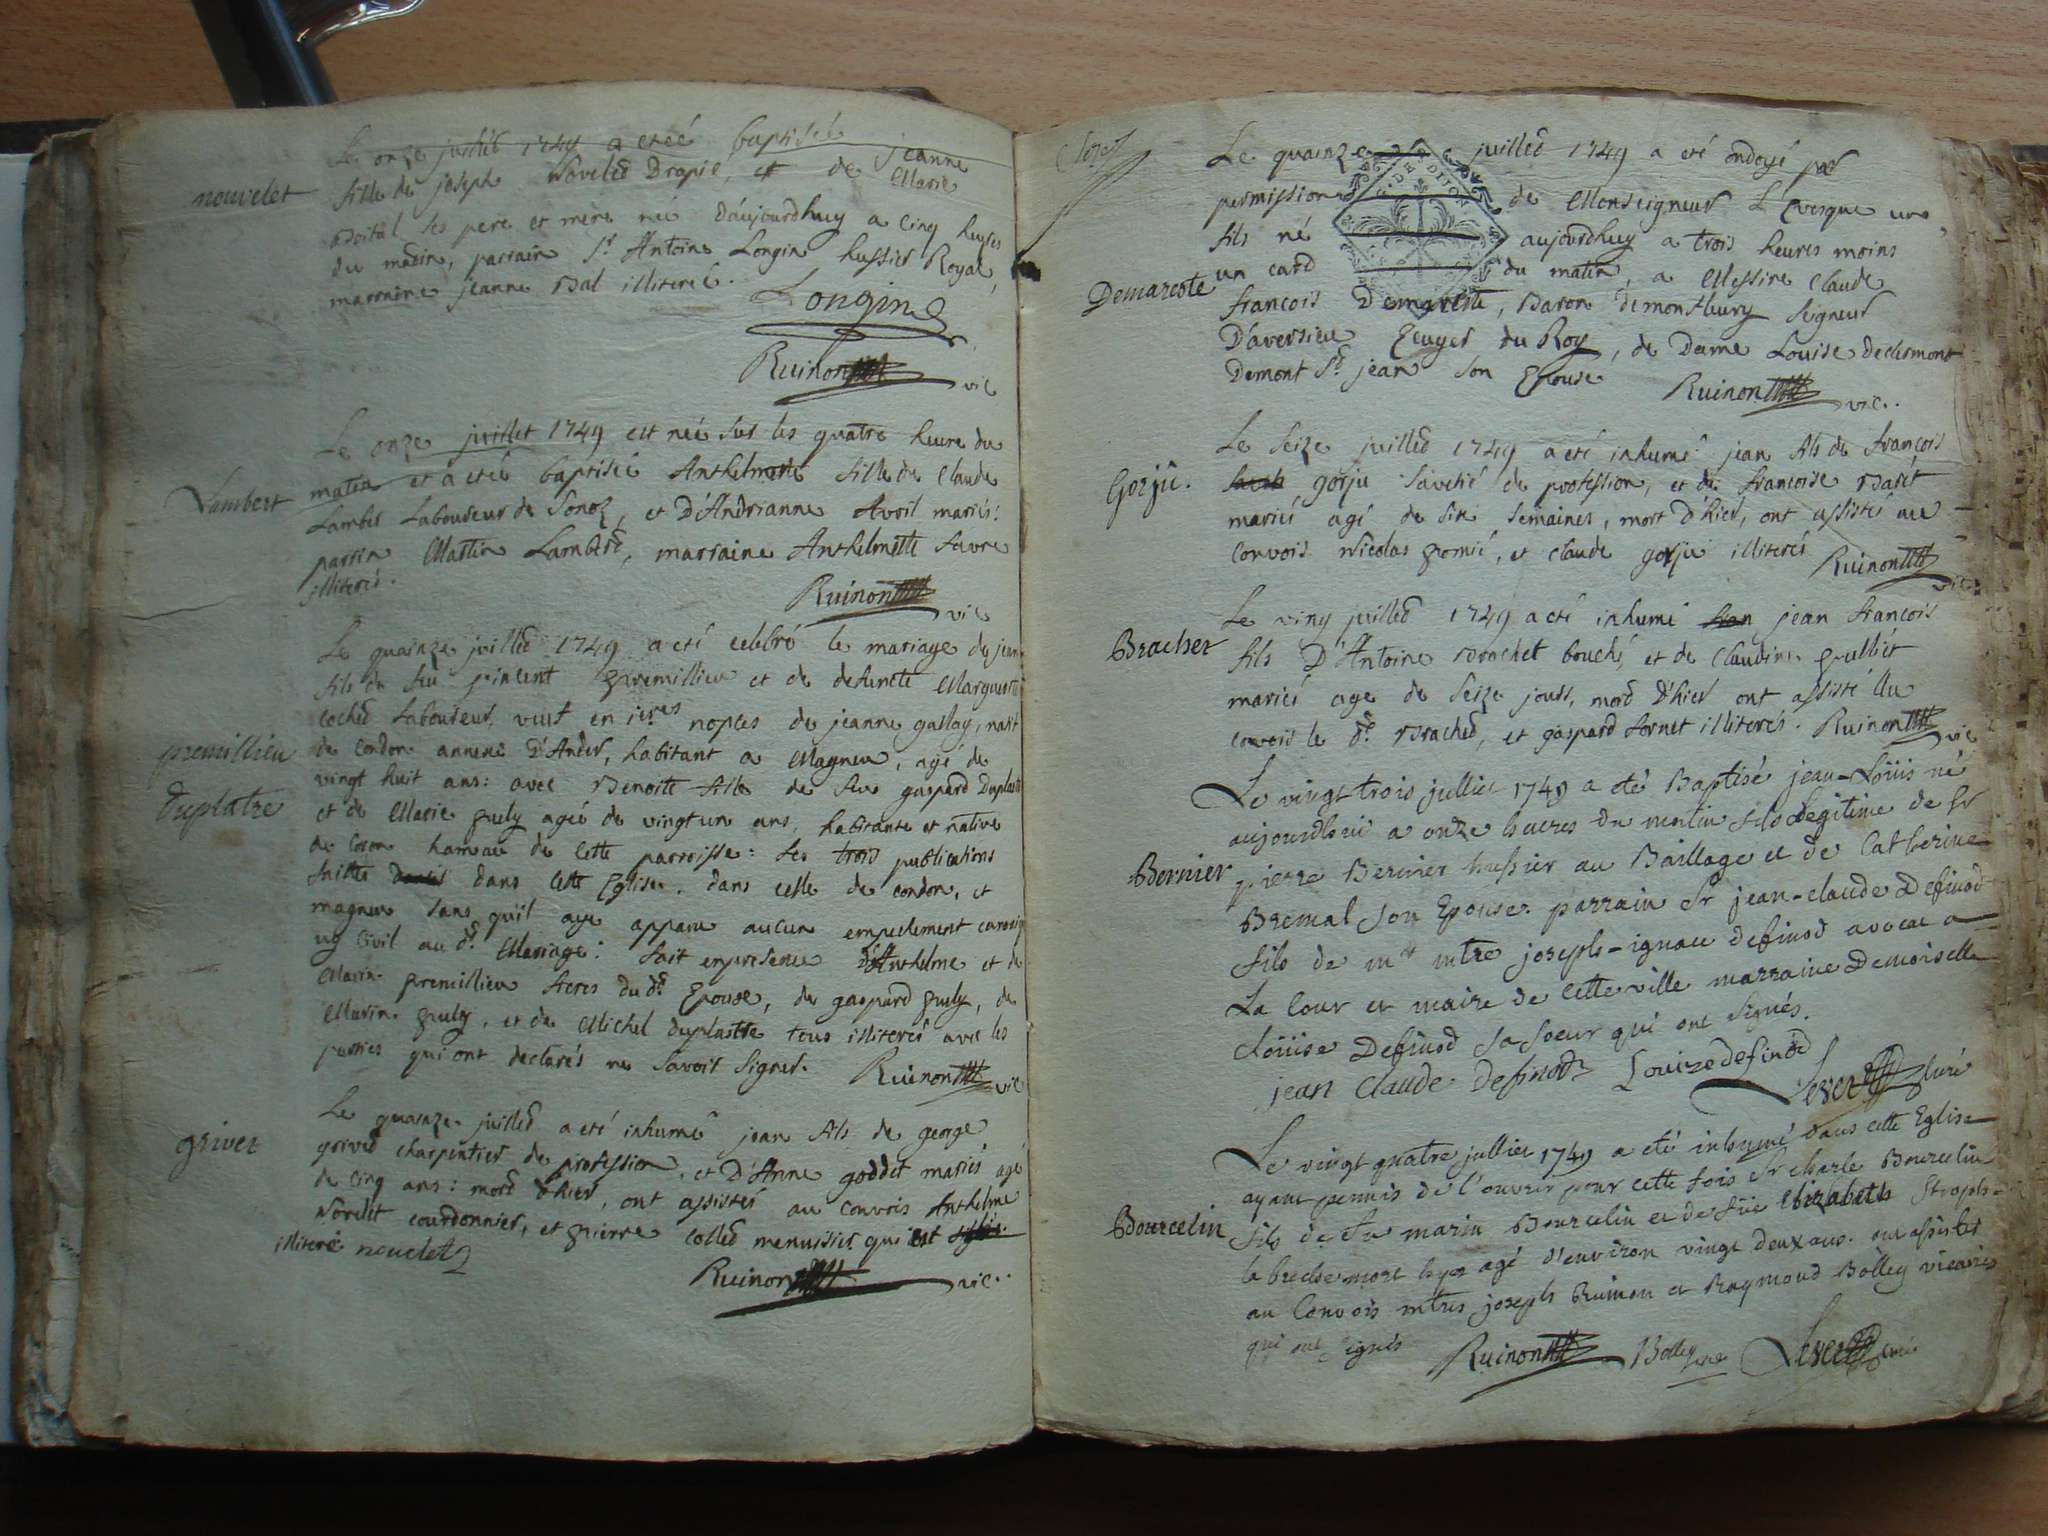 nouvelet
Le onze juillet 1749 a etée baptisée jeanne
fille de joseph Novelet Drapié, et de Marie
ses pere et mere née D'aujourdhuy a cinq heures
du matin, parrain Sr. Antoine Longin hussier Royal,
marraine jeanne Bal illiterée.
Longin
Ruinon vic
Lambert
Le onze juillet 1749 est née sur les quatre heure du
matin et a etée baptisée Anthelmette fille de Claude
Lambert Laboureur de Sonoz, et D'Andrianne Avril mariés:
parrin Martin Lambert, marraine Anthelmette favre
illiterés.
Ruinon vic
premillieu
Duplatre
Le quainze juillet 1749 a eté celebré le mariage de jean
fils de feu vincent premillieu et de defuncte Marguerite
cochet Laboureur, veuf en 1eres nopces de jeanne gallay, natif
de Condon annexe D'Andert, habitant a Magnieu, agé de
vingt huit ans: avec Benoitte fille de feu gaspard Duplastre
et de Marie guely agée de vingt un ans, habitante et native
de Coron hameau de cette parroisse: les trois publications
faittes dans cette Eglise, dans celle de Condon, et
magnieu sans qu'il aye apparu aucun empechement canoniq
ny Civil au dt. Mariage: fait enpresence d'Anthelme et de
Marin premillieu freres du dt. Epoux, de gaspard guely, de
Marin guely, et de Michel duplastre tous illiterés avec les
parties qui ont declarés ne savoir signer. Ruinon vic
griver
Le quainze juillet a eté inhumé jean fils de george
grivet charpentier de profession, et D'Anne goddet mariés agé
de cinq ans: mort d'hier, ont assistés au convois Anthelme
Novelet courdonnier, et pierre collet menuisier qui est
illiteré nouelet
Ruinon vic..
Le quainze juillet 1749 a eté ondoyé par
permission de Monseigneur L'Evesque un
fils né aujourdhuy a trois heures moins
un card du matin, a Messire Claude
Demarcote
francois Demareste, Baron de montfleury seigneur
D'aversieu Ecuyer du Roy, de Dame Louise declermont
Demont St. jean son Epouse Ruinon vic..
Gorju.
Le seize juillet 1749 a eté inhumé jean fils de françois
gorju savetié de profession, et de francoise Barét
mariés agé de six semaines, mort d'hier, ont assistés au
convois Nicolas pornié, et claude gorju illiterés Ruinon vic.
Bracher
Le ving juillet 1749 a eté inhumé jean francois
fils D'Antoine Brachet bouché, et de Claudine gulliet
mariés age de seize jours, mort d'hier ont assisté Au
convois le dt. Brachet, et gaspard fornet illiterés. Ruinon vic
Bernier
Le vingt trois jullier 1749 a eté Baptisé jean-Loüis né
aujourdhuÿ a onze heures du matin fils Legitime de Sr
pierre Bernier hussier au Baillage et de Catherine
Bremal son Epouse. parrain Sr jean-claude Definod
fils de mr mtre joseph-ignace definod avocat a
La Cour et maire de cette ville marraine Demoiselle
Loüise Definod sa Soeur qui ont signés.
jean Claude Definod Louize definod
Sevez Curé
Bourcelin
Le vingt quatre jullier 1749 a eté inhumé dans cette Eglise
ayant permis de l'ouvrir pour cette fois Sr Charle Bourcelin
fils de feu marin Bourcelin et de füe Elizabeth
mort hyer agé d'environ vingt deux ans. ont assistés
au Convois mtres joseph Ruinon et Raymond Bolley vicaires
qui ont signés Ruinon Bolley vic Sevez curé